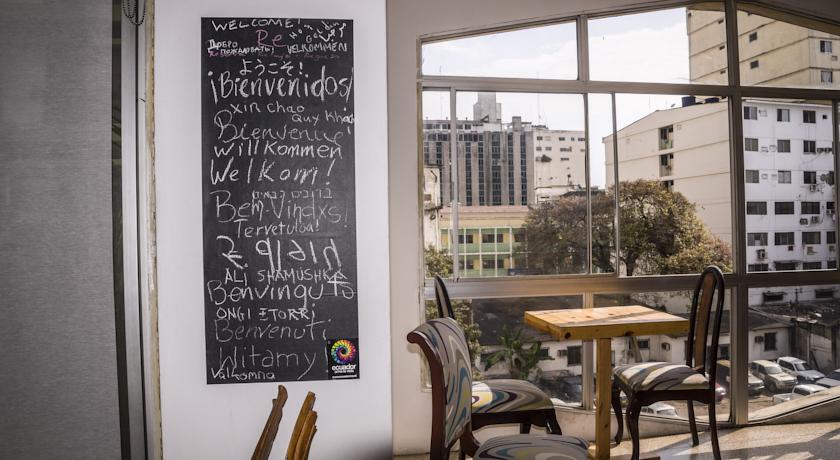 WELCOME!
Re
ДОБРО
ПОЖАЛОВАТЬ!
VELKOMMEN
ようこそ!
¡Bienvenidos!
XIN CHAO
QUY KHACH
Bienvenue
Willkommen
Welkom!
ברוכים הבאים
Bem-Vindxs!
Tervetuloa!
ALI SHAMUSHKA
Benvinguts
ONGI ETORRI
Benvenuti
Witamy
Välkomna
ecuador